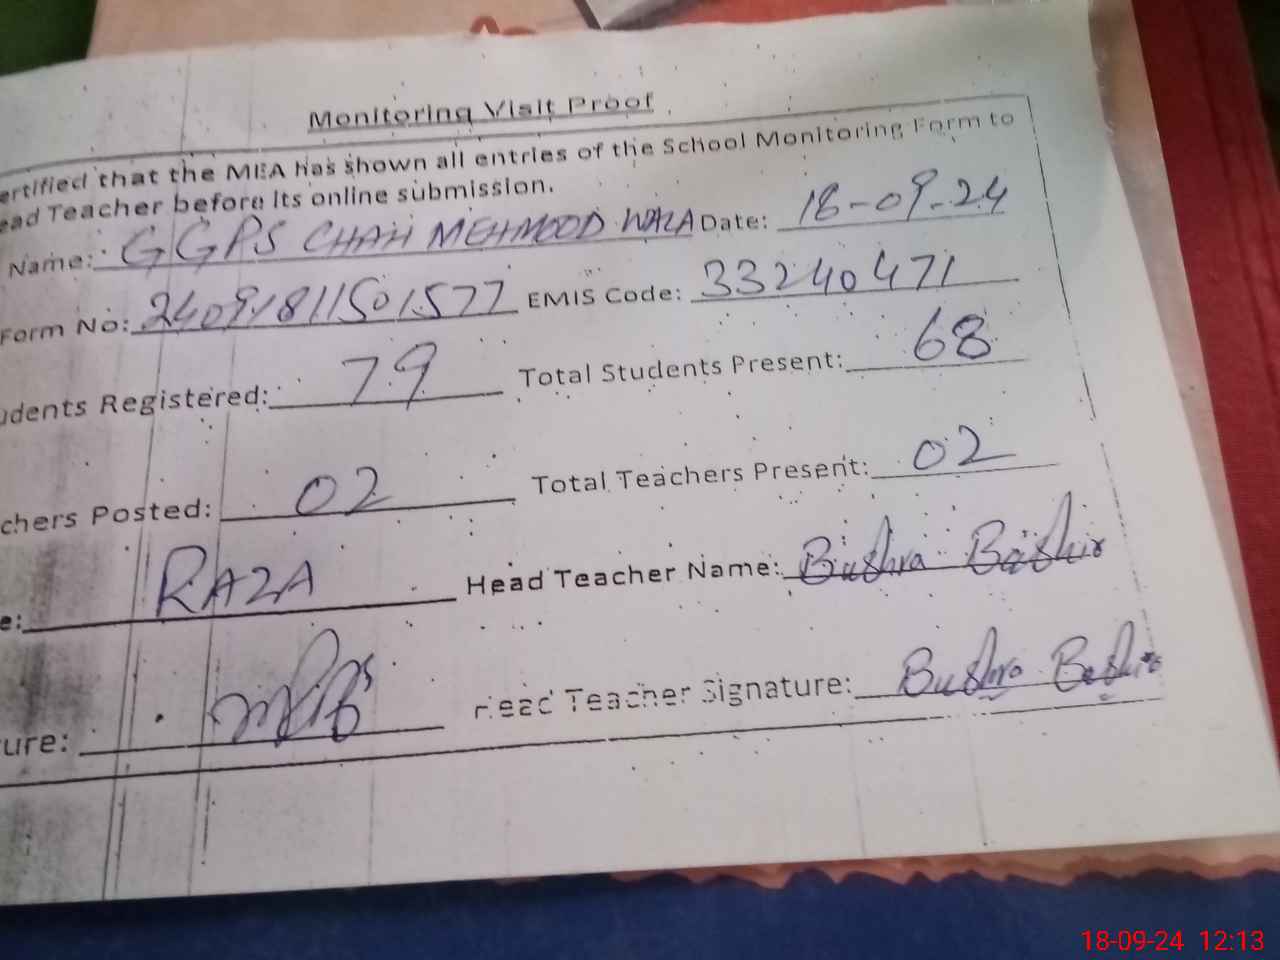 Monitoring Visit Proof
ertified that the MEA has shown all entries of the School Monitoring Form to
ead Teacher before its online submission.
Name: GGPS CHAH MEHMOOD WALA Date: 18-09-24
Form No: 24091811501577 EMIS Code: 33240471
udents Registered: 79 Total Students Present: 68
chers Posted: 02 Total Teachers Present: 02
e: RAZA Head Teacher Name: Bushra Bashir
ure: Head Teacher Signature: Bushra Bashir
18-09-24 12:13